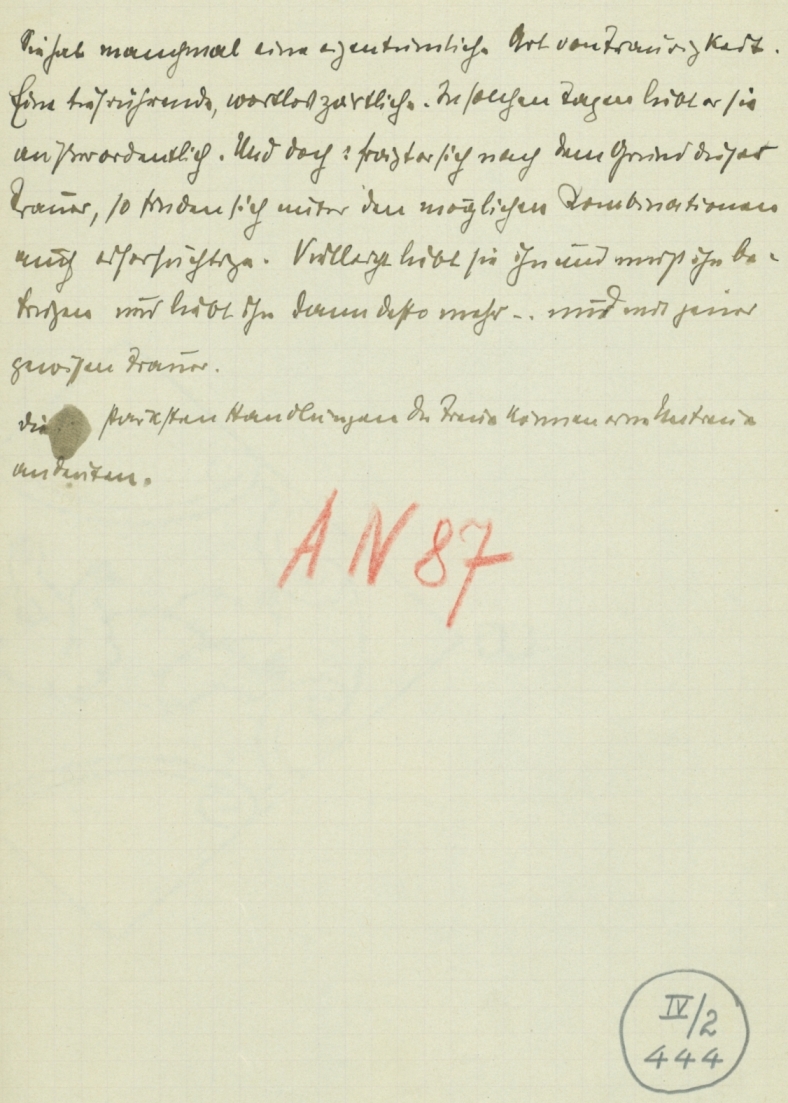 Sie hat manchmal eine eigentümliche Art von Traurigkeit.
Eine tiefrührende, wortlos zärtliche. In solchen Tagen liebt er sie
außerordentlich. Und doch: frägt er sich nach dem Grund dieser
Trauer, so finden sich unter den möglichen Kombinationen
auch eifersüchtige. Vielleicht liebt sie ihn und muß ihn be-
trügen und liebt ihn dann desto mehr .. und mit jener
gewissen Trauer.
Die stärksten Handlungen der Treue können eine Untreue
andeuten.
AN 87
IV/2
444